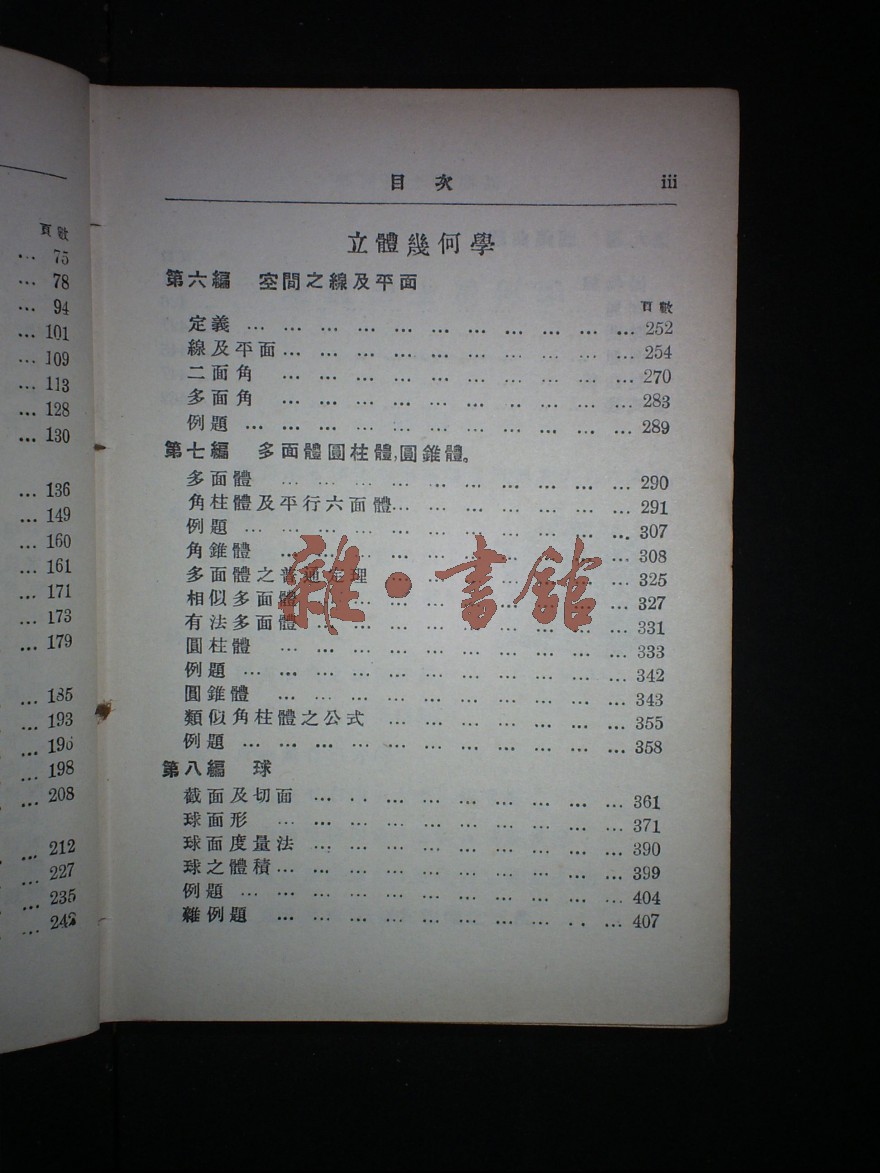 頁數
... 75
... 78
... 94
... 101
... 109
... 113
... 128
... 130
... 136
... 149
... 160
... 161
... 171
... 173
... 179
... 185
... 193
... 198
... 208
... 212
... 227
... 235
... 242
目次 iii
立體幾何學
第六編 空間之線及平面
頁數
定義 ... ... ... ... ... ... ... ... ... ... ... 252
線及平面 ... ... ... ... ... ... ... ... ... ... 254
二面角 ... ... ... ... ... ... ... ... ... ... 270
多面角 ... ... ... ... ... ... ... ... ... ... 283
例題 ... ... ... ... ... ... ... ... ... ... ... 289
第七編 多面體圓柱體,圓錐體。
多面體 ... ... ... ... ... ... ... ... ... ... 290
角柱體及平行六面體 ... ... ... ... ... ... ... 291
例題 ... ... ... ... ... ... ... ... ... ... ... 307
角錐體 ... ... ... ... ... ... ... ... ... ... 308
多面體之普通定理 ... ... ... ... ... ... ... 325
相似多面體 ... ... ... ... ... ... ... ... ... 327
有法多面體 ... ... ... ... ... ... ... ... ... 331
圓柱體 ... ... ... ... ... ... ... ... ... ... 333
例題 ... ... ... ... ... ... ... ... ... ... ... 342
圓錐體 ... ... ... ... ... ... ... ... ... ... 343
類似角柱體之公式 ... ... ... ... ... ... ... 355
例題 ... ... ... ... ... ... ... ... ... ... ... 358
第八編 球
截面及切面 ... ... ... ... ... ... ... ... ... 361
球面形 ... ... ... ... ... ... ... ... ... ... 371
球面度量法 ... ... ... ... ... ... ... ... ... 390
球之體積 ... ... ... ... ... ... ... ... ... ... 399
例題 ... ... ... ... ... ... ... ... ... ... ... 404
雜例題 ... ... ... ... ... ... ... ... ... ... 407
雜·書館